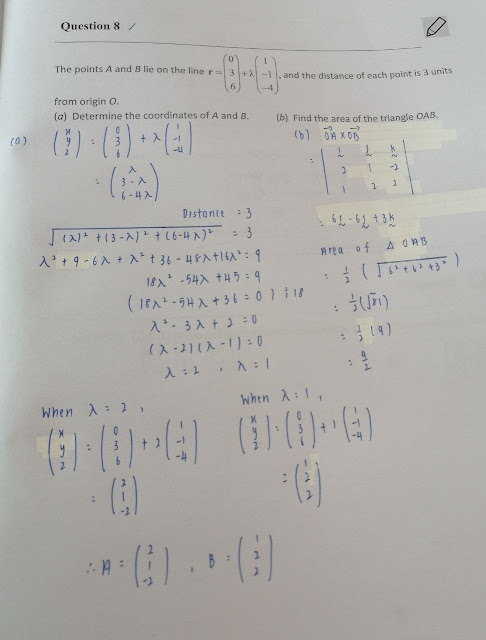 Question 8 /
The points A and B lie on the line r = (0 3 6) + λ (1 -1 -4), and the distance of each point is 3 units
from origin O.
(a) Determine the coordinates of A and B.
(b) Find the area of the triangle OAB.
(a) (x y z) = (0 3 6) + λ (1 -1 -4)
= (λ 3-λ 6-4λ)
Distance = 3
√(λ)² + (3-λ)² + (6-4λ)² = 3
λ² + 9 - 6λ + λ² + 36 - 48λ + 16λ² = 9
18λ² - 54λ + 45 = 9
(18λ² - 54λ + 36 = 0) ÷ 18
λ² - 3λ + 2 = 0
(λ-2)(λ-1) = 0
λ = 2 , λ = 1
When λ = 2 ,
(x y z) = (0 3 6) + 2 (1 -1 -4)
= (2 1 -2)
When λ = 1 ,
(x y z) = (0 3 6) + 1 (1 -1 -4)
= (1 2 2)
∴ A = (2 1 -2) , B = (1 2 2)
(b) OA × OB
= | i j k
2 1 -2
1 2 2 |
= 6i - 6j + 3k
Area of Δ OAB
= 1/2 (√6² + 6² + 3²)
= 1/2 (√81)
= 1/2 (9)
= 9/2